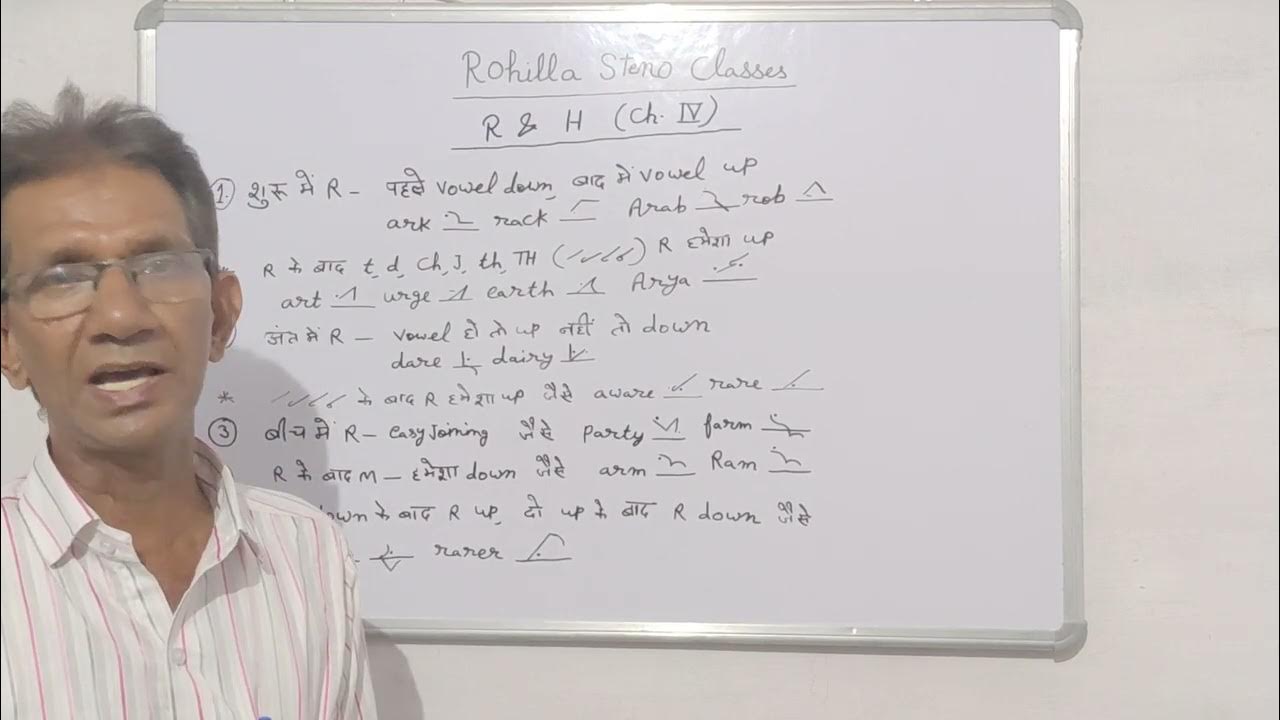 Rohilla Steno Classes
R & H (Ch. IV)
1. शुरू में R - पहले vowel down, बाद में vowel up
ark rack Arab rob
* R के बाद t, d, Ch, J, th, TH ( ) R हमेशा up
art urge earth Arya
अंत में R - vowel हो तो up नहीं तो down
dare dairy
* के बाद R हमेशा up जैसे aware rare
3 बीच में R - easy Joining जैसे Party farm
R के बाद m - हमेशा down जैसे arm Ram
down के बाद R up, दो up के बाद R down जैसे
rarer